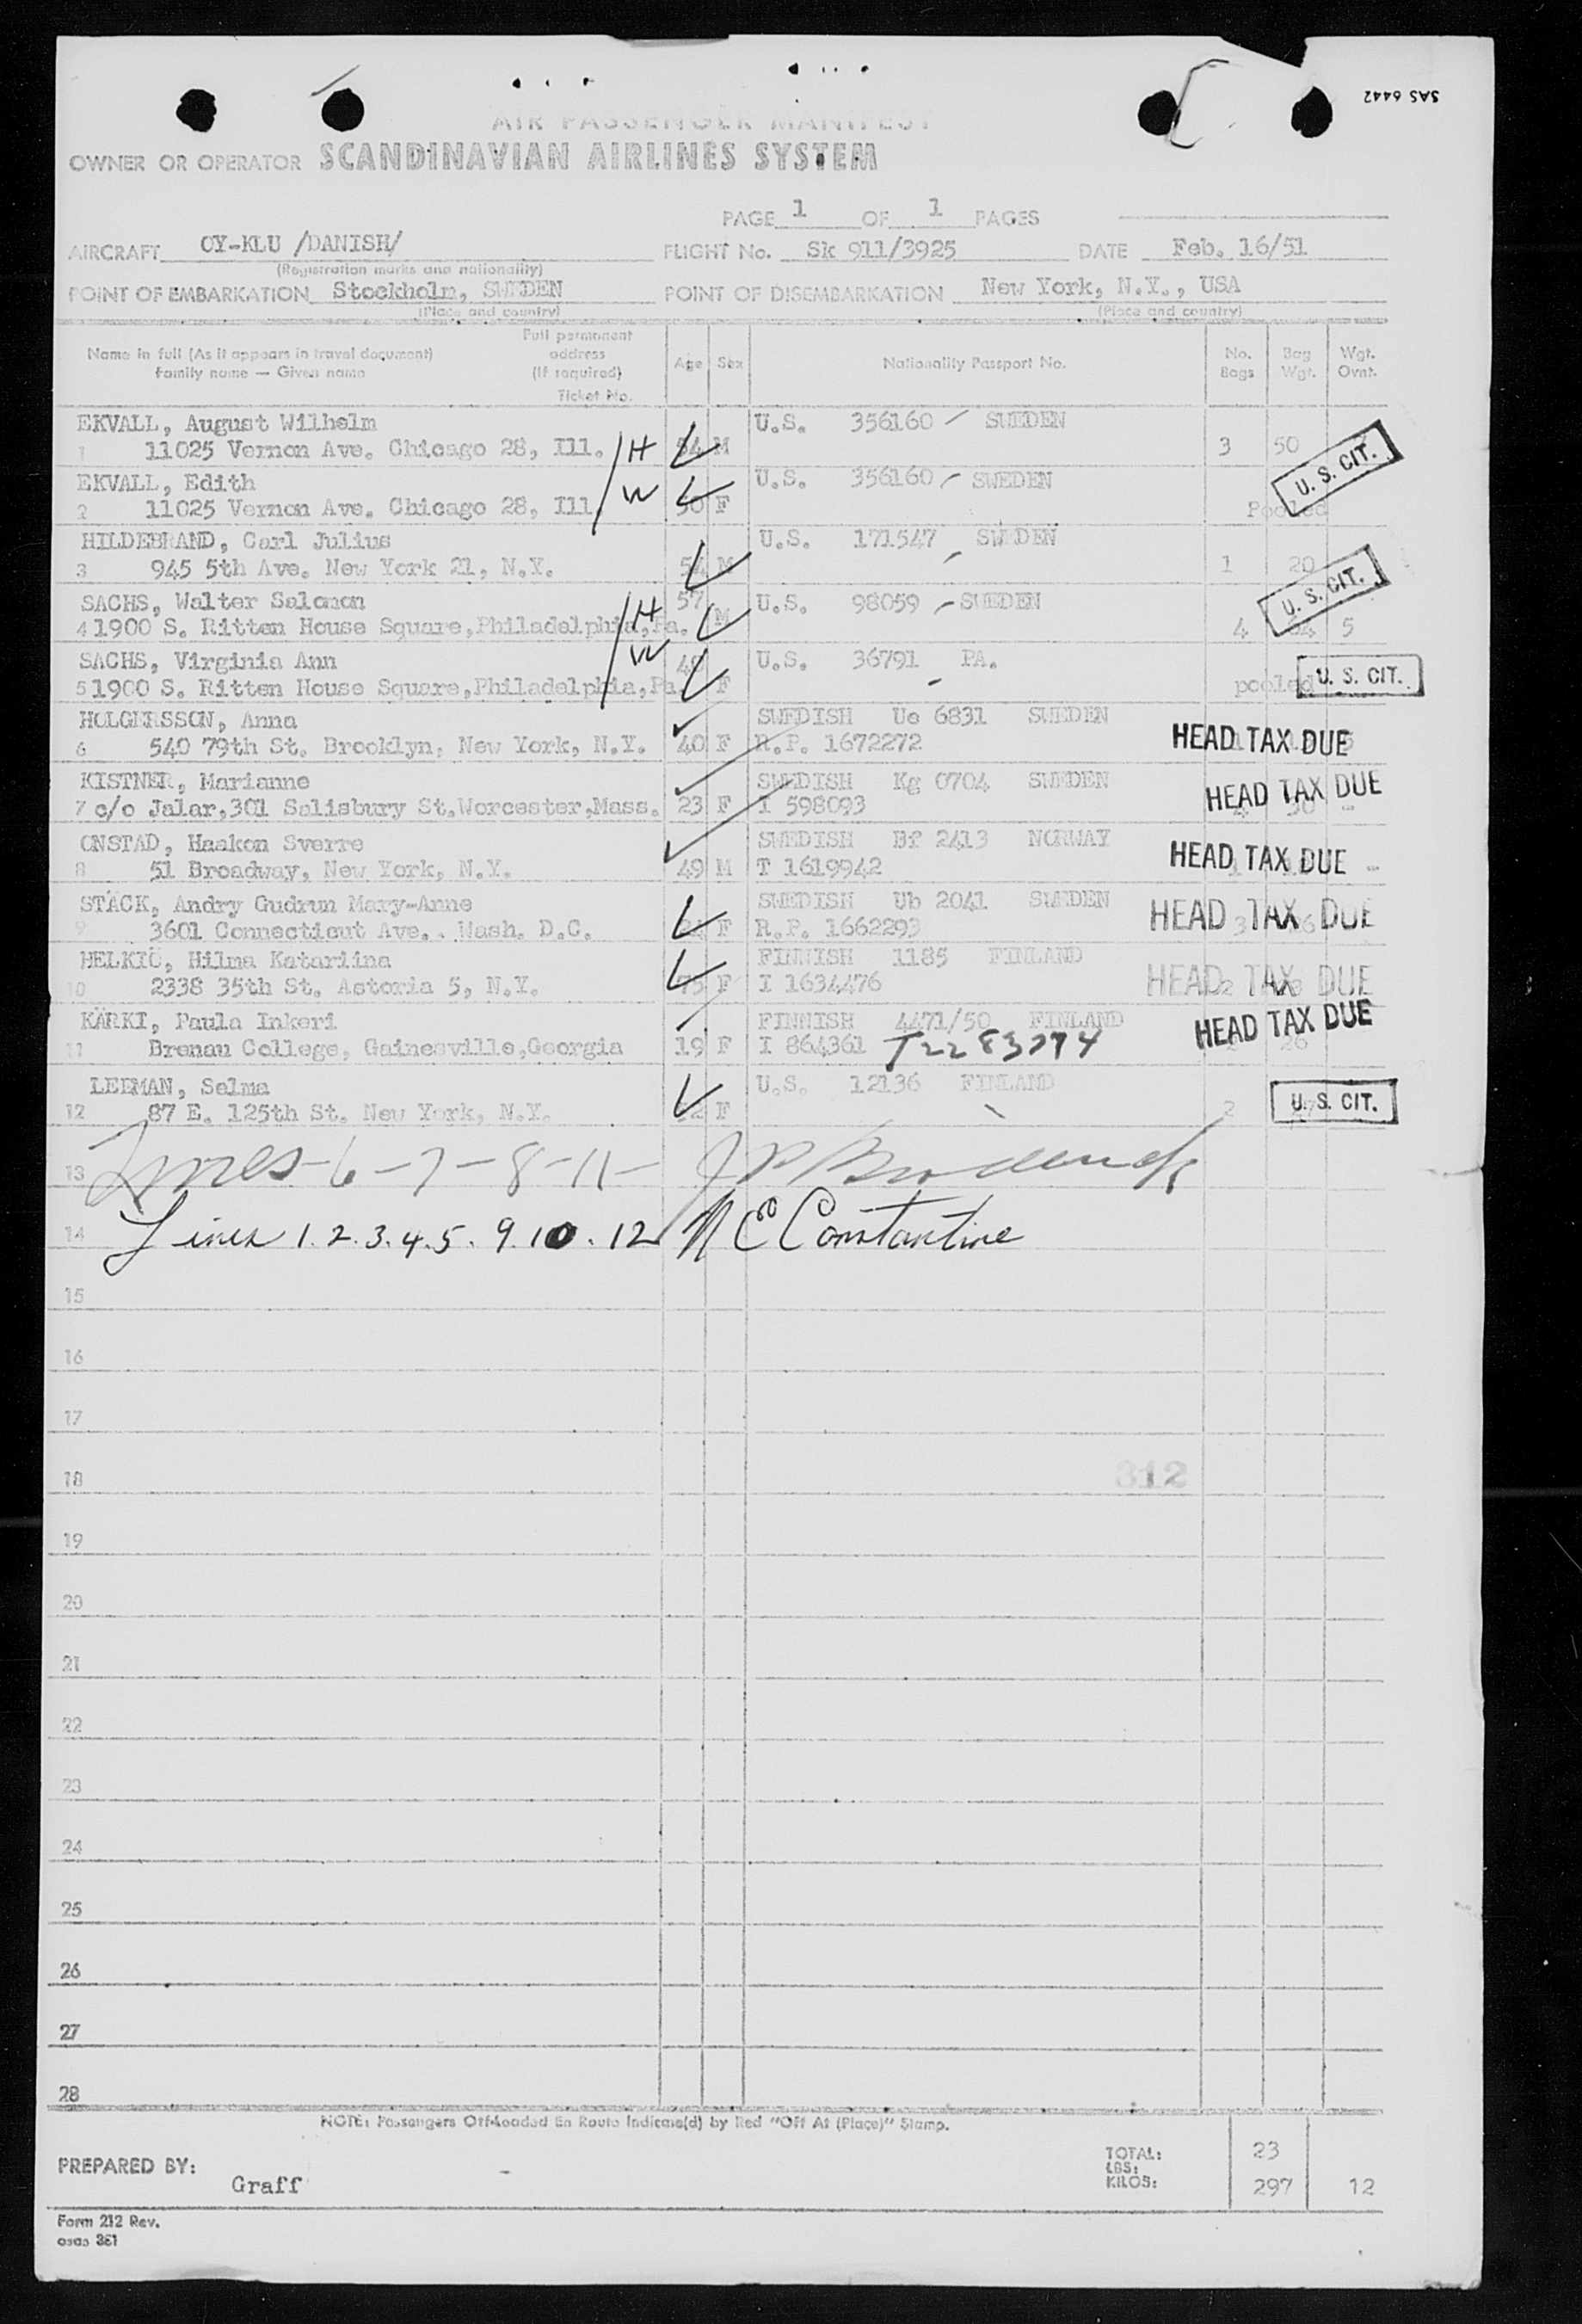 SAS 6442
AIR PASSENGER MANIFEST
OWNER OR OPERATOR SCANDINAVIAN AIRLINES SYSTEM
PAGE 1 OF 1 PAGES
AIRCRAFT OY-KLU /DANISH/ FLIGHT No. Sk 911/3925 DATE Feb. 16/51
(Registration marks and nationality)
POINT OF EMBARKATION Stockholm, SWEDEN POINT OF DISEMBARKATION New York, N.Y., USA
(Place and country) (Place and country)
Name in full (As it appears in travel document) Family name — Given name Full permanent address (If required) Ticket No. Age Sex Nationality Passport No. No. Bags Bag Wgt. Wgt. Ovnt.
EKVALL, August Wilhelm U.S. 356160 - SWEDEN
1 11025 Vernon Ave. Chicago 28, Ill. H 54 M 3 50 U. S. CIT.
EKVALL, Edith U.S. 356160 - SWEDEN
2 11025 Vernon Ave. Chicago 28, Ill. W 50 F Pooled
HILDEBRAND, Carl Julius U.S. 171547 SWEDEN
3 945 5th Ave. New York 21, N.Y. M 1 20 U. S. CIT.
SACHS, Walter Salomon 57 U.S. 98059 - SWEDEN
4 1900 S. Ritten House Square, Philadelphia, Pa. H M 4 5
SACHS, Virginia Ann U.S. 36791 PA.
5 1900 S. Ritten House Square, Philadelphia, Pa. W F pooled U. S. CIT.
HOLGERSSON, Anna SWEDISH Ue 6831 SWEDEN
6 540 79th St. Brooklyn, New York, N.Y. 40 F R.P. 1672272 HEAD TAX DUE
KISTNER, Marianne SWEDISH Kg 0704 SWEDEN
7 c/o Jalar, 301 Salisbury St. Worcester, Mass. 23 F I 598093 HEAD TAX DUE
ONSTAD, Haakon Sverre SWEDISH Bf 2413 NORWAY
8 51 Broadway, New York, N.Y. 49 M T 1619942 HEAD TAX DUE -
STÄCK, Andry Gudrun Mary-Anne SWEDISH Ub 2041 SWEDEN
9 3601 Connecticut Ave. Wash. D.C. F R.P. 1662293 3 HEAD TAX DUE
HELKIÖ, Hilma Katariina FINNISH 1185 FINLAND
10 2338 35th St. Astoria 5, N.Y. 75 F I 1634476 2 HEAD TAX DUE
KÄRKI, Paula Inkeri FINNISH 4471/50 FINLAND
11 Brenau College, Gainesville, Georgia 19 F I 864361 T2283774 26 HEAD TAX DUE
LEEMAN, Selma U.S. 12136 FINLAND
12 87 E. 125th St. New York, N.Y. F 2 U. S. CIT.
13 Lines - 6 - 7 - 8 - 11 -
14 Lines 1. 2. 3. 4. 5. 9. 10. 12 N E Constantine
15
16
17
18 312
19
20
21
22
23
24
25
26
27
28
NOTE: Passengers Off-loaded En Route Indicate(d) by Red "Off At (Place)" Stamp.
PREPARED BY: Graff
TOTAL: 23
LBS:
KILOS: 297 12
Form 212 Rev.